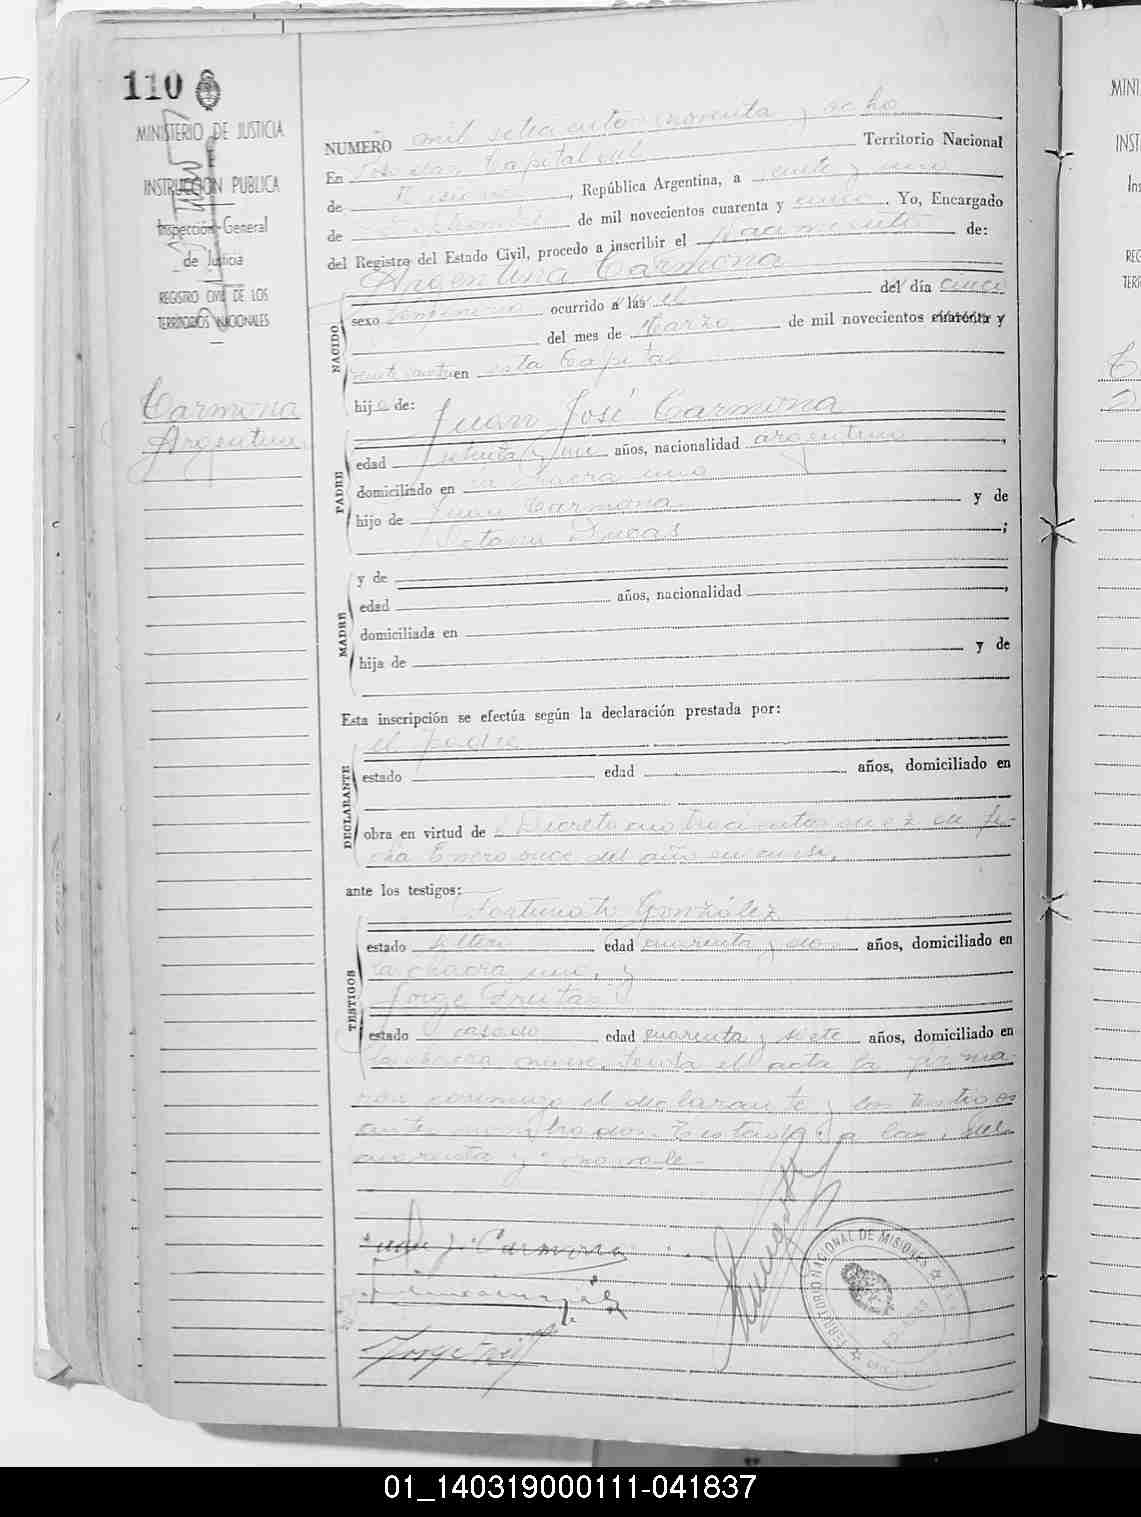 110
MINISTERIO DE JUSTICIA
E
INSTRUCCION PUBLICA
Inspección General
de Justicia
REGISTRO CIVIL DE LOS
TERRITORIOS NACIONALES
Carmona
Argentina
NUMERO mil setecientos noventa y ocho
En Posadas Capital del Territorio Nacional
de Misiones, República Argentina, a veinte y uno
de de mil novecientos cuarenta y cinco. Yo, Encargado
del Registro del Estado Civil, procedo a inscribir el nacimiento de:
Argentina Carmona
NACIDO
sexo femenino ocurrido a las el del día cinco
del mes de Marzo de mil novecientos cuarenta y
en esta Capital
hija de:
PADRE
Juan José Carmona
edad treinta y años, nacionalidad argentina,
domiciliado en la chacra uno
hijo de Juan Carmona y de
;
MADRE
y de
edad años, nacionalidad ,
domiciliada en
hija de y de
Esta inscripción se efectúa según la declaración prestada por:
DECLARANTE
el padre
estado edad años, domiciliado en
obra en virtud de Decreto cuatrocientos diez de fe-
cha Enero once del año en curso,
ante los testigos:
TESTIGOS
Fortunato González
estado soltero edad cuarenta y dos años, domiciliado en
la chacra uno, y
Jorge Frutas
estado casado edad cuarenta y siete años, domiciliado en
la chacra once. Leida el acta la firma-
ron conmigo el declarante y los testigos
antes nombrados. Testado: a las, del
cuarenta y: no vale.-
Juan J. Carmona
Jorge
TERRITORIO NACIONAL DE MISIONES
01_140319000111-041837